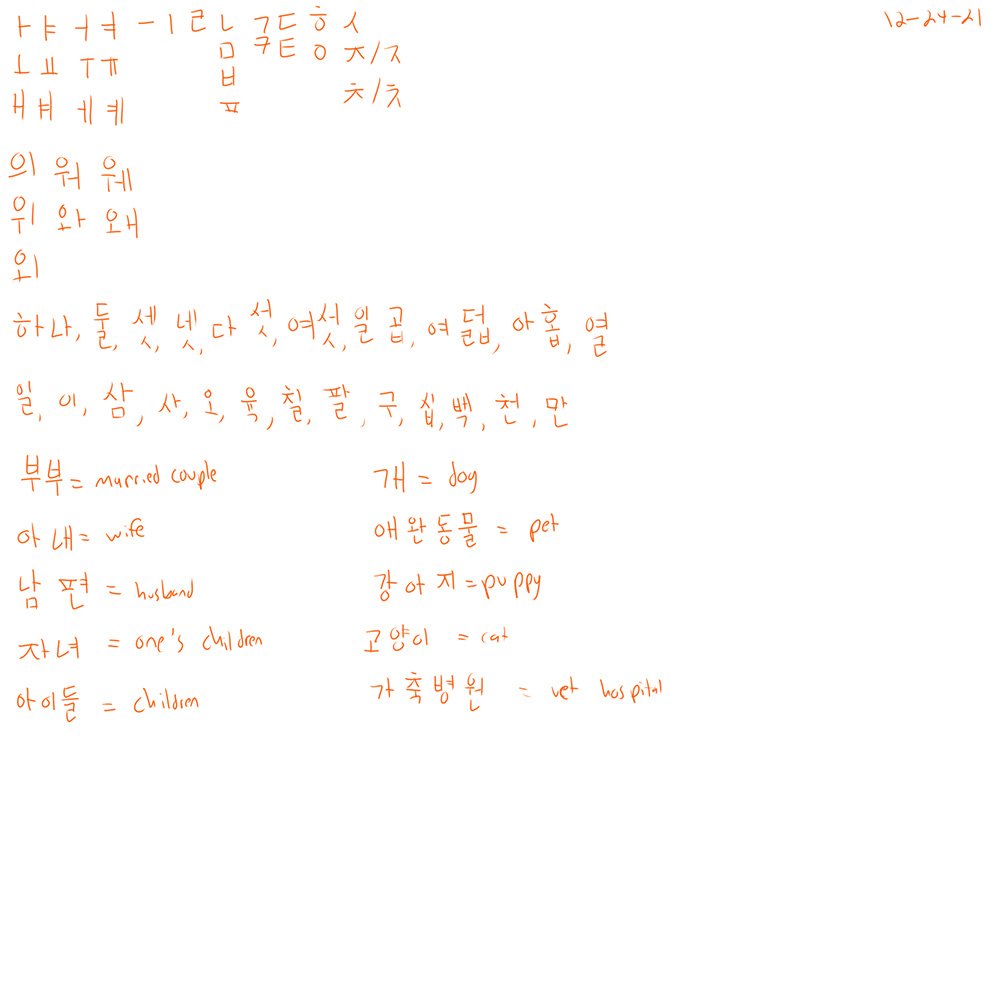 ㅏㅑ ㅓㅕ ㅡㅣ ㄹ ㄴ ㄱㄷ ㅎ ㅅ 12-24-21
ㅗㅛ ㅜㅠ ㅁ ㅋㅌ ㅇ ㅈ/ㅈ
ㅂ
ㅐㅒ ㅔㅖ ㅍ ㅊ/ㅊ
의 워 웨
위 와 왜
외
하나, 둘, 셋, 넷, 다섯, 여섯, 일곱, 여덟, 아홉, 열
일, 이, 삼, 사, 오, 육, 칠, 팔, 구, 십, 백, 천, 만
부부 = married couple 개 = dog
아내 = wife 애완동물 = pet
남편 = husband 강아지 = puppy
자녀 = one's children 고양이 = cat
아이들 = children 가축병원 = vet hospital